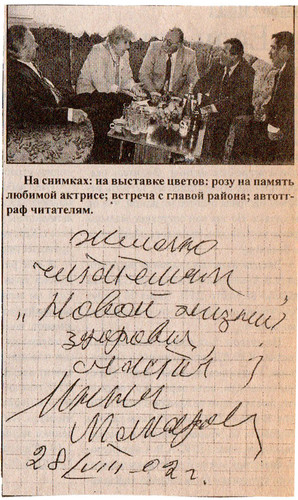 На снимках: на выставке цветов: розу на память
любимой актрисе; встреча с главой района; автотг-
раф читателям.
желаю
читателям
"Новой жизни"
здоровья,
счастья!
Инна
Макарова
28/VIII-02г.